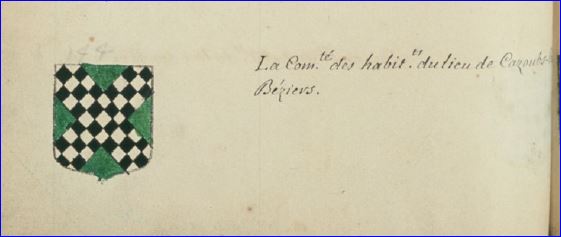 144
La Com.té des habit.ts du lieu de Cazouls-
Béziers.